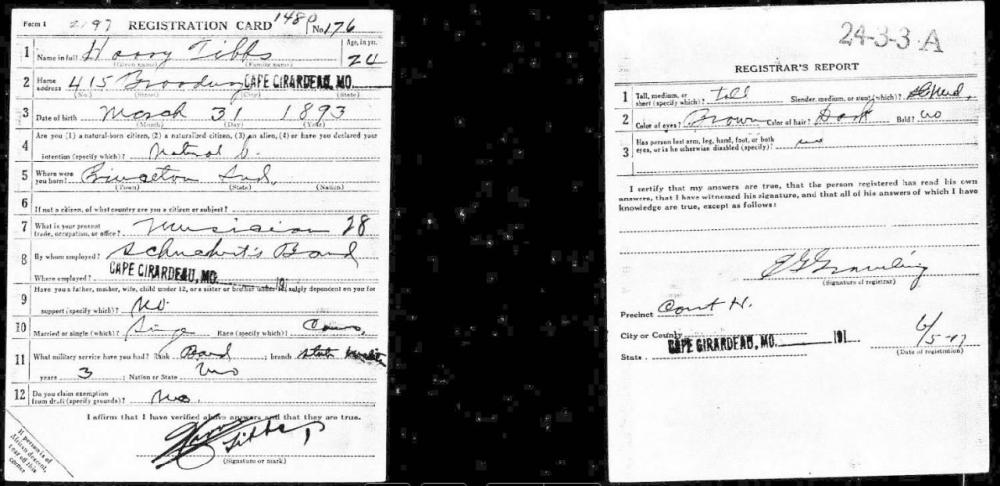 Form 1 2197 REGISTRATION CARD 148 No 176
1 Name in full Harry Tibbs Age, in yrs. 24
(Given name) (Family name)
2 Home address 415 Broadway CAPE GIRARDEAU, MO.
(No.) (Street) (City) (State)
3 Date of birth March 31 1893
(Month) (Day) (Year)
Are you (1) a natural-born citizen, (2) a naturalized citizen, (3) an alien, (4) or have you declared your
4 intention (specify which)? Natural b.
5 Where were you born? Princeton Ind.
(Town) (State) (Nation)
6 If not a citizen, of what country are you a citizen or subject?
7 What is your present trade, occupation, or office? Musician 28
8 By whom employed? Band
Where employed? CAPE GIRARDEAU, MO. 191
9 Have you a father, mother, wife, child under 12, or a sister or brother under 12, solely dependent on you for
support (specify which)? No
10 Married or single (which)? Single Race (specify which)? Cauc.
11 What military service have you had? Rank Band ; branch State
years 3 ; Nation or State Mo
12 Do you claim exemption from draft (specify grounds)? No.
I affirm that I have verified above answers and that they are true.
Harry Tibbs
(Signature or mark)
If person is of
African descent,
tear off this
corner
24-3-3-A
REGISTRAR'S REPORT
1 Tall, medium, or short (specify which)? Tall Slender, medium, or stout (which)?
2 Color of eyes? Brown Color of hair? Dark Bald? No
3 Has person lost arm, leg, hand, foot, or both eyes, or is he otherwise disabled (specify)? no
I certify that my answers are true, that the person registered has read his own
answers, that I have witnessed his signature, and that all of his answers of which I have
knowledge are true, except as follows:
(Signature of registrar)
Precinct Court H.
City or County CAPE GIRARDEAU, MO. 191
State 6/5-17
(Date of registration)